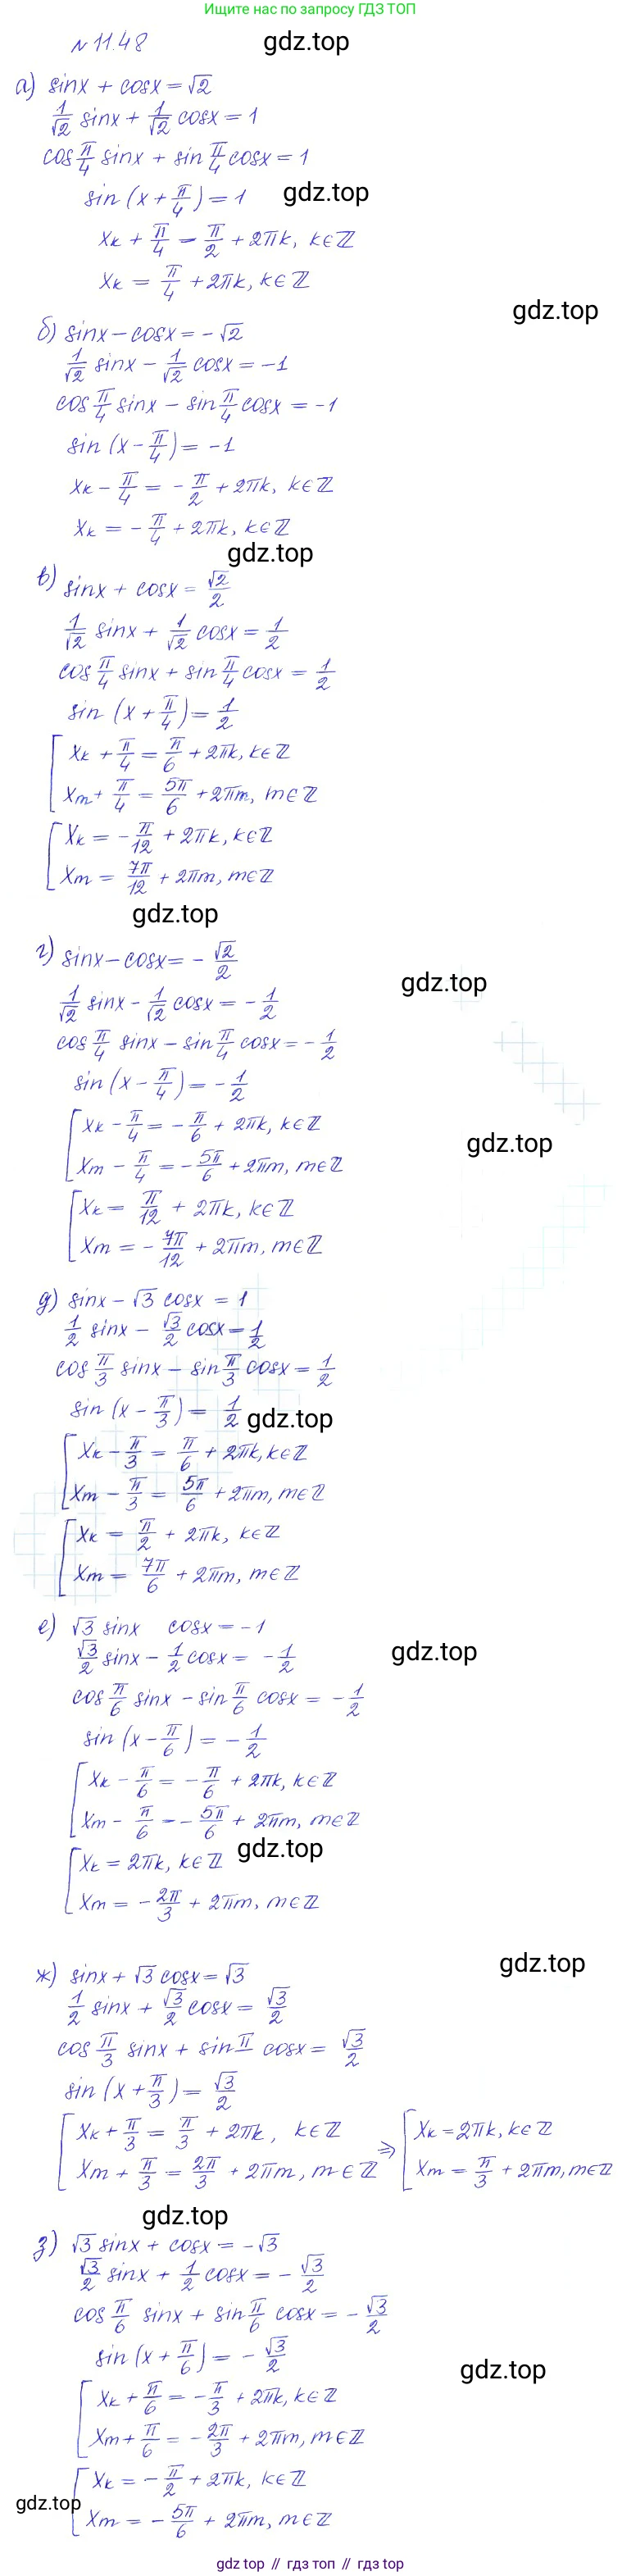 Ищите нас по запросу ГДЗ ТОП
№11.48
gdz.top
а) sinx + cosx = √2
1/√2 sinx + 1/√2 cosx = 1
cos π/4 sinx + sin π/4 cosx = 1
sin (x + π/4) = 1
gdz.top
xₖ + π/4 = π/2 + 2πk, k∈ℤ
xₖ = π/4 + 2πk, k∈ℤ
gdz.top
б) sinx − cosx = −√2
1/√2 sinx − 1/√2 cosx = −1
cos π/4 sinx − sin π/4 cosx = −1
sin (x − π/4) = −1
xₖ − π/4 = −π/2 + 2πk, k∈ℤ
xₖ = −π/4 + 2πk, k∈ℤ
gdz.top
в) sinx + cosx = √2/2
1/√2 sinx + 1/√2 cosx = 1/2
cos π/4 sinx + sin π/4 cosx = 1/2
sin (x + π/4) = 1/2
[ xₖ + π/4 = π/6 + 2πk, k∈ℤ
xₘ + π/4 = 5π/6 + 2πm, m∈ℤ
[ xₖ = −π/12 + 2πk, k∈ℤ
xₘ = 7π/12 + 2πm, m∈ℤ
gdz.top
г) sinx − cosx = −√2/2
gdz.top
1/√2 sinx − 1/√2 cosx = −1/2
cos π/4 sinx − sin π/4 cosx = −1/2
sin (x − π/4) = −1/2
[ xₖ − π/4 = −π/6 + 2πk, k∈ℤ
gdz.top
xₘ − π/4 = −5π/6 + 2πm, m∈ℤ
[ xₖ = π/12 + 2πk, k∈ℤ
xₘ = −7π/12 + 2πm, m∈ℤ
д) sinx − √3 cosx = 1
1/2 sinx − √3/2 cosx = 1/2
cos π/3 sinx − sin π/3 cosx = 1/2
sin (x − π/3) = 1/2
gdz.top
[ xₖ − π/3 = π/6 + 2πk, k∈ℤ
xₘ − π/3 = 5π/6 + 2πm, m∈ℤ
[ xₖ = π/2 + 2πk, k∈ℤ
xₘ = 7π/6 + 2πm, m∈ℤ
е) √3 sinx cosx = −1
gdz.top
√3/2 sinx − 1/2 cosx = −1/2
cos π/6 sinx − sin π/6 cosx = −1/2
sin (x − π/6) = −1/2
[ xₖ − π/6 = −π/6 + 2πk, k∈ℤ
xₘ − π/6 = −5π/6 + 2πm, m∈ℤ
gdz.top
[ xₖ = 2πk, k∈ℤ
xₘ = −2π/3 + 2πm, m∈ℤ
gdz.top
ж) sinx + √3 cosx = √3
1/2 sinx + √3/2 cosx = √3/2
cos π/3 sinx + sin π cosx = √3/2
sin (x + π/3) = √3/2
[ xₖ + π/3 = π/3 + 2πk, k∈ℤ ⇒ [ xₖ = 2πk, k∈ℤ
xₘ + π/3 = 2π/3 + 2πm, m∈ℤ xₘ = π/3 + 2πm, m∈ℤ
gdz.top
з) √3 sinx + cosx = −√3
√3/2 sinx + 1/2 cosx = −√3/2
cos π/6 sinx + sin π/6 cosx = −√3/2
sin (x + π/6) = −√3/2
gdz.top
[ xₖ + π/6 = −π/3 + 2πk, k∈ℤ
xₘ + π/6 = −2π/3 + 2πm, m∈ℤ
[ xₖ = −π/2 + 2πk, k∈ℤ
gdz.top
xₘ = −5π/6 + 2πm, m∈ℤ
gdz top // гдз топ // gdz top